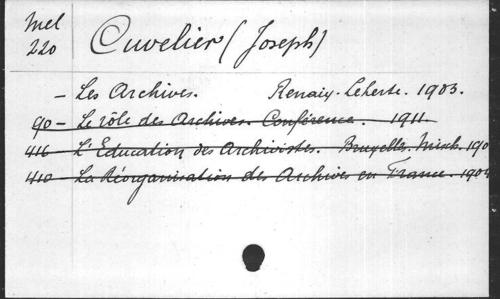 Mel
220
Cuvelier (Joseph)
- Les Archives. Renaix. Leherte. 1903.
90 - Le rôle des Archives. Conférence. 1911.
416 - L'Education des Archivistes. Bruxelles. 190
410 - La Réorganisation des Archives en France. 190